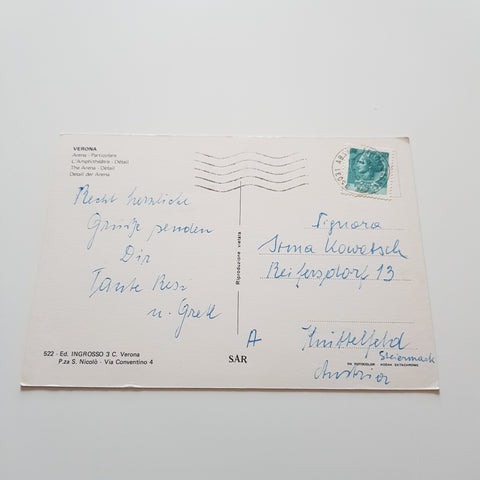 VERONA
Arena - Particolare
L'Amphithéâtre - Détail
The Arena - Detail
Detail der Arena
Recht herzliche
Grüße senden
Dir
Tante Resi
u. Gretl
522 - Ed. INGROSSO 3 C. Verona
P.za S. Nicolò - Via Conventino 4
Riproduzione vietata
SAR
Signora
Irma Kowatsch
Reifersdorf 13
A Knittelfeld
Steiermark
Austria
KODAK EKTACHROME